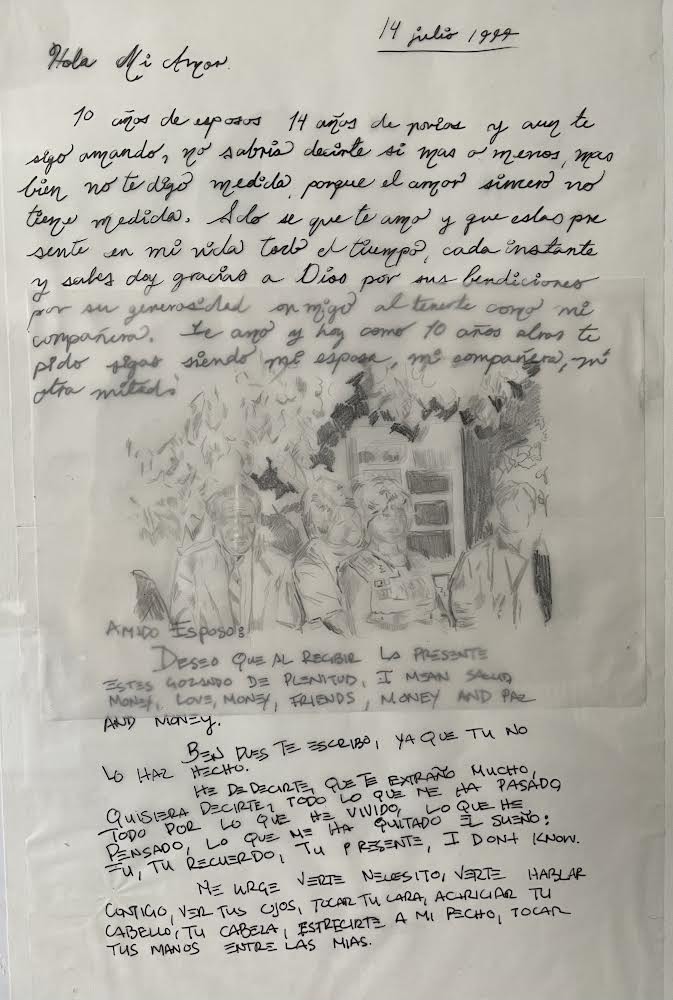 14 julio 1999
Hola Mi Amor.
10 años de esposos 14 años de novios y aun te
sigo amando, no sabria decirte si mas o menos, mas
bien no te digo medida, porque el amor sincero no
tiene medida. Solo se que te amo y que estas pre
sente en mi vida todo el tiempo, cada instante
y sabes doy gracias a Dios por sus bendiciones
por su generosidad conmigo al tenerte como mi
compañera. Te amo y hoy como 10 años atras te
pido sigas siendo mi esposa, mi compañera, mi
otra mitad.
AMIDO ESPOSO:
DESEO QUE AL RECIBIR LA PRESENTE
ESTES GOZANDO DE PLENITUD, I MEAN SALUD
MONEY, LOVE, MONEY, FRIENDS, MONEY AND PAZ
AND MONEY.
BEN PUES TE ESCRIBO, YA QUE TU NO
LO HAZ HECHO.
HE DE DECIRTE, QUE TE EXTRAÑO MUCHO,
QUISIERA DECIRTE, TODO LO QUE ME HA PASADO
TODO POR LO QUE HE VIVIDO, LO QUE HE
PENSADO, LO QUE ME HA QUITADO EL SUEÑO:
TU, TU RECUERDO, TU PRESENTE, I DONT KNOW.
ME URGE VERTE NECESITO, VERTE HABLAR
CONTIGO, VER TUS OJOS, TOCAR TU CARA, ACARICIAR TU
CABELLO, TU CABEZA, ESTRECIRTE A MI PECHO, TOCAR
TUS MANOS ENTRE LAS MIAS.